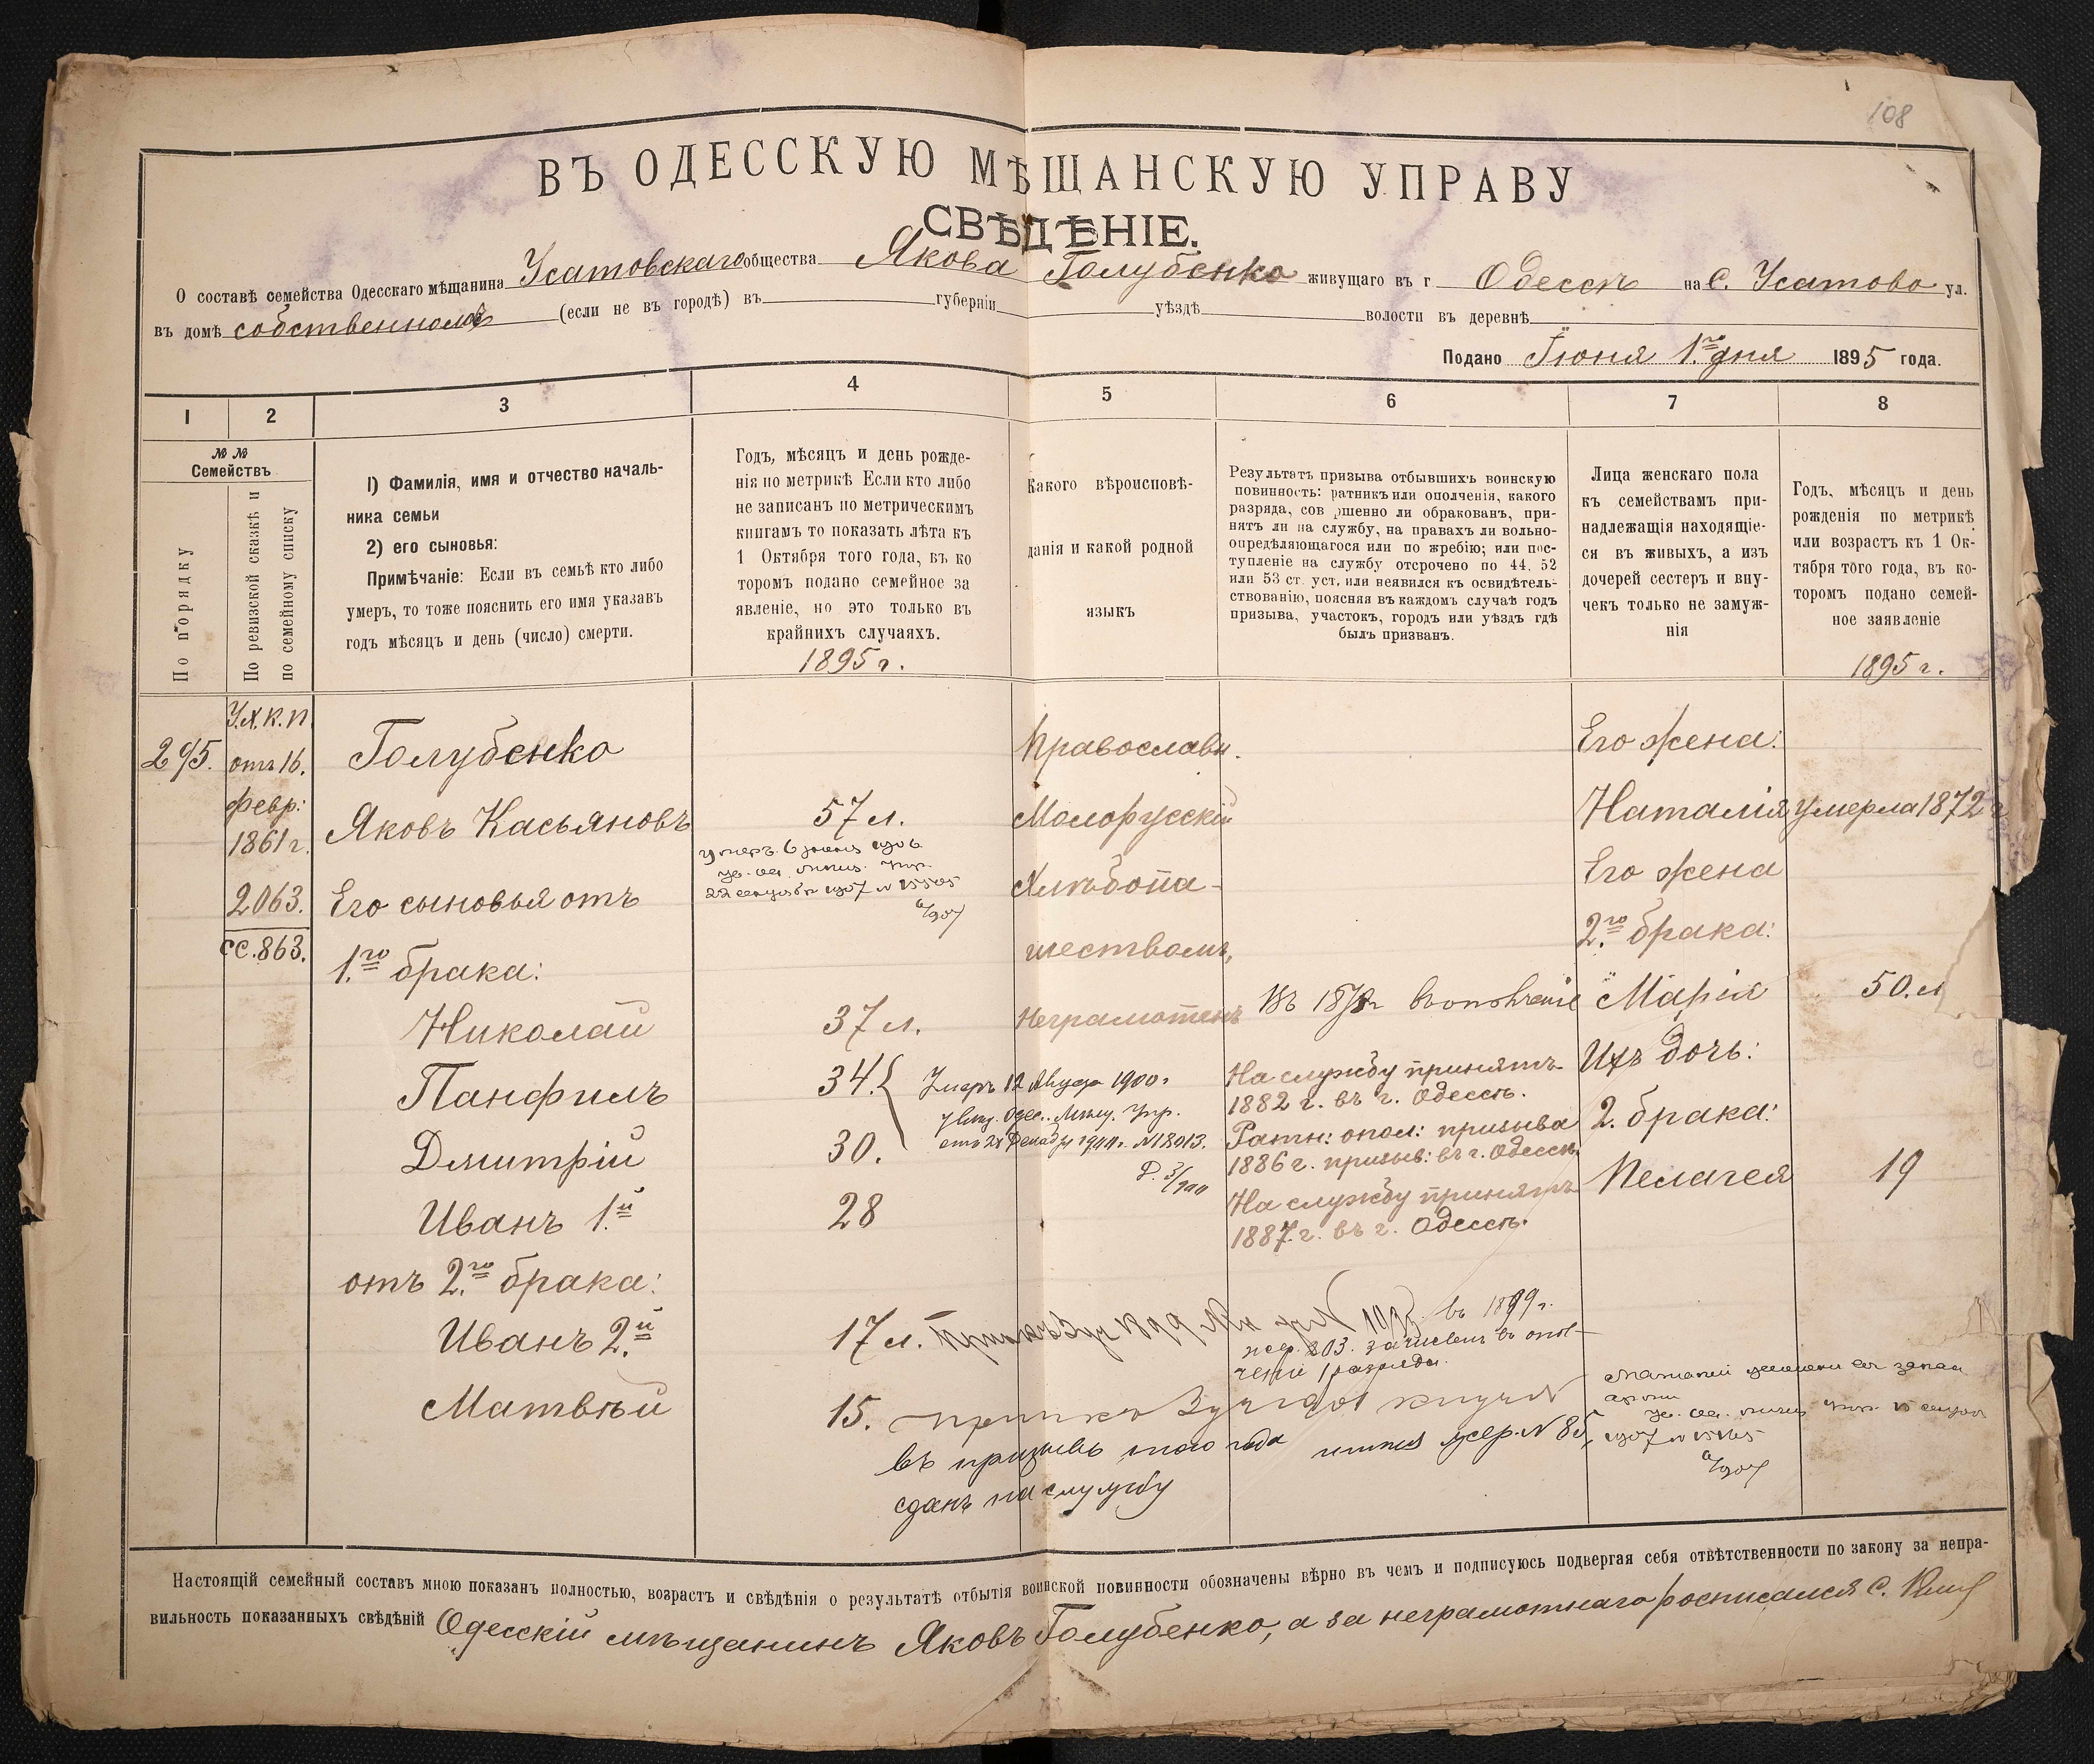 108
ВЪ ОДЕССКУЮ МѢЩАНСКУЮ УПРАВУ
СВѢДѢНІЕ.
О составѣ семейства Одесскаго мѣщанина Усатовскаго общества Якова Голубенко живущаго въ г. Одессѣ на С. Усатово ул.
въ домѣ собственномъ (если не въ городѣ) въ губерніи уѣздѣ волости въ деревнѣ
Подано Іюня 1.го дня 1895 года.
1 2 3 4 5 6 7 8
№№
Семействъ
По порядку
По ревизской сказкѣ и
по семейному списку
1) Фамилія, имя и отчество началь-
ника семьи
2) его сыновья:
Примѣчаніе: Если въ семьѣ кто либо
умеръ, то тоже пояснить его имя указавъ
годъ мѣсяцъ и день (число) смерти.
Годъ, мѣсяцъ и день рожде-
нія по метрикѣ Если кто либо
не записанъ по метрическимъ
книгамъ то показать лѣта къ
1 Октября того года, въ ко
торомъ подано семейное за
явленіе, но это только въ
крайнихъ случаяхъ.
1895 г.
Какого вѣроисповѣ-
данія и какой родной
языкъ
Результатъ призыва отбывшихъ воинскую
повинность: ратникъ или ополченія, какого
разряда, сов ршенно ли обракованъ, при-
нятъ ли на службу, на правахъ ли вольно-
опредѣляющагося или по жребію; или пос-
тупленіе на службу отсрочено по 44. 52
или 53 ст. уст. или неявился къ освидѣтель-
ствованію, поясняя въ каждомъ случаѣ годъ
призыва, участокъ, городъ или уѣздъ гдѣ
былъ призванъ.
Лица женскаго пола
къ семействамъ при-
надлежащія находящіе-
ся въ живыхъ, а изъ
дочерей сестеръ и вну-
чекъ только не замуж-
нія
Годъ, мѣсяцъ и день
рожденія по метрикѣ
или возрастъ къ 1 Ок-
тября того года, въ ко-
торомъ подано семей-
ное заявленіе
1895 г.
295.
У.Х.К.П.
отъ 16.
февр:
1861 г.
2063.
сс.863.
Голубенко
Яковъ Касьяновъ
Его сыновья отъ
1.го брака:
Николай
Панфилъ
Дмитрій
Иванъ 1.й
отъ 2.го брака:
Иванъ 2.й
Матвѣй
57 л.
умеръ 6 1906
37 л.
34.
30.
28
17 л.
15.
Умеръ 12 Августа 1900 г.
Увед. Одес. Мѣщ. Упр.
№18013.
Православн.
Молорусскій
Хлѣбопа-
шествомъ,
Неграмотенъ
Въ 1878 г. въ ополченіе
На службу принятъ
1882 г. въ г. Одессѣ.
Ратн: опол: призыва
1886 г. призыв: въ г. Одессѣ.
На службу принятъ
1887. г. въ г. Одессѣ.
въ 1899 г.
жер. 203. зачисленъ въ опол-
ченіе 1 разряда.
въ призывъ того года жер. № 85,
сданъ на службу
Его жена:
Наталія умерла 1872 г
Его жена
2.го брака:
Марія 50. л
Ихъ дочь:
2. брака:
Пелагея 19
Настоящій семейный составъ мною показанъ полностью, возрастъ и свѣдѣнія о результатѣ отбытія воинской повинности обозначены вѣрно въ чемъ и подписуюсь подвергая себя отвѣтственности по закону за непра-
вильность показанныхъ свѣдѣній Одесскій мѣщанинъ Яковъ Голубенко, а за неграмотнаго росписался С.